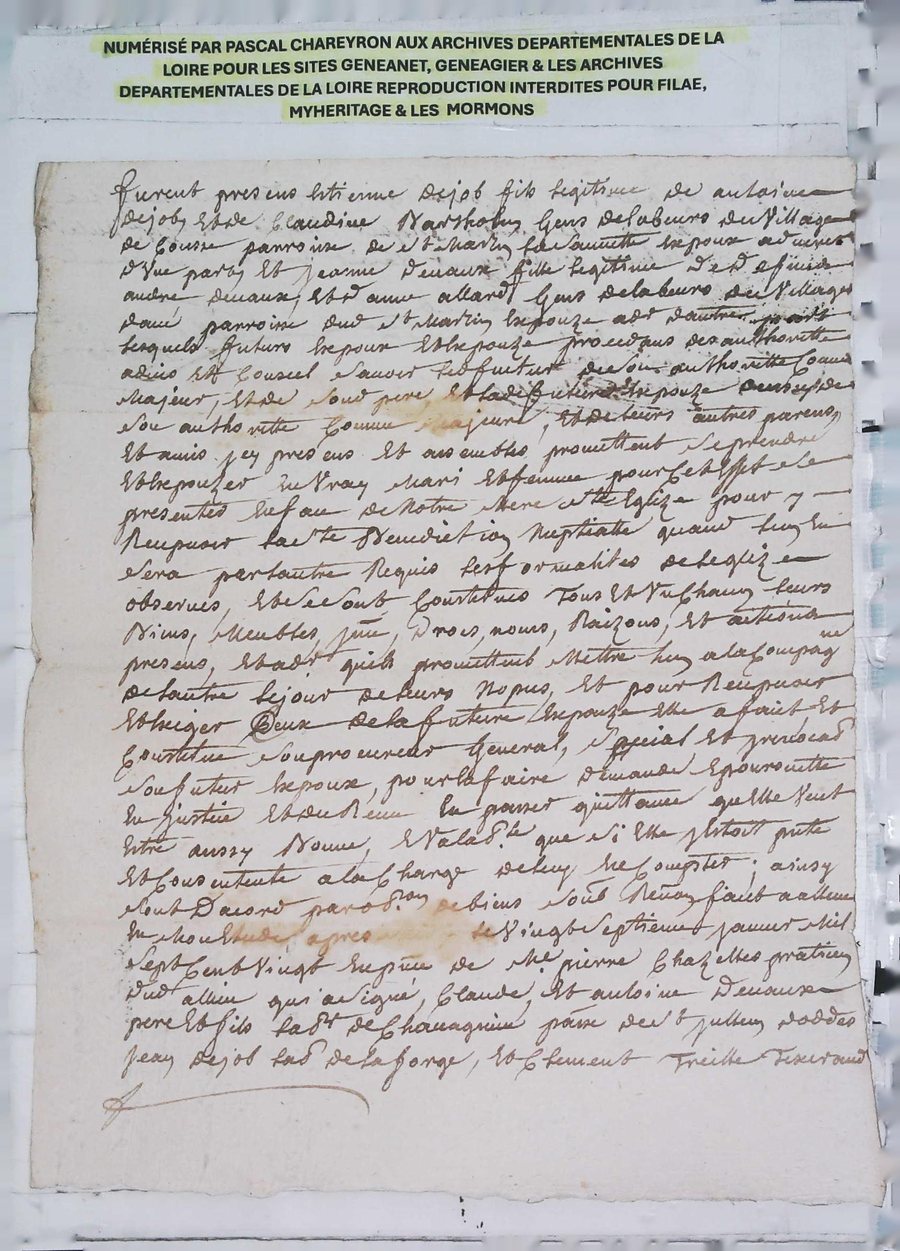 NUMÉRISÉ PAR PASCAL CHAREYRON AUX ARCHIVES DEPARTEMENTALES DE LA
LOIRE POUR LES SITES GENEANET, GENEAGIER & LES ARCHIVES
DEPARTEMENTALES DE LA LOIRE REPRODUCTION INTERDITES POUR FILAE,
MYHERITAGE & LES MORMONS
furent presens Estienne dejob fils legitime de antoine
dejob, et de Claudine Barthollin gens de labeurs du Village
de Cousse parroisse de St Martin espoux advenir
d'Une part, Et Jeanne Devaux fille legitime de defunt
andré devaux, Et d'anne allard gens de labeurs du Village
parroisse dud St Martin Espouze adv d'autre part
lesquels futurs Espoux Et Espouze procedans des authorité
advis Et Conseil sauoir led futur de son authorité Comme
Majeur, Et de sond pere, Et lad future Espouze
son authorité Comme Majeure, Et de leurs autres parens,
Et amis jcy presens Et assemblés promettent se prendre
Et Espouzer En Vray Mari Et femme pour Cet Effet se
presenter En face de Notre Mere Ste Eglize pour y
Recepuoir la ste Benediction Nuptialle quand lun En
sera par lautre Requis les formalités de leglize
observés, Et se sont Constitués Tous Et Un Chacun leurs
Biens, Meubles, jm, Drois, noms, Raizons, Et actions
presens, Et adr quils promettent Mettre lun a la Compagne
de lautre le jour de leurs Nopces, Et pour Recepuoir
Et Exiger Ceux de la future Espouze Elle a fait Et
Constitué son procureur General, special Et jrrevocab
son futur Espoux, pour En faire demande Et poursuitte
En justice Et du Receu En passer quittance qu'elle Veut
Estre aussy Bonne, Et Valable que si Elle y Estoit pnte
Et Consentente a la Charge de luy En Compter; ainsy
sont D'acord par obon de biens soub Renon fait a allieu
En Mon Etude apres le Vingt Septieme janvier Mil
Sept Cent Vingt En pnce de Me pierre Chazelles praticien
dud allieu qui a signé, Claude, Et antoine Devaux
pere Et fils labrs de Chavagnieu passe de St jullien doddes
jean dejob labr de la forge, Et Clement Treille Tixerand